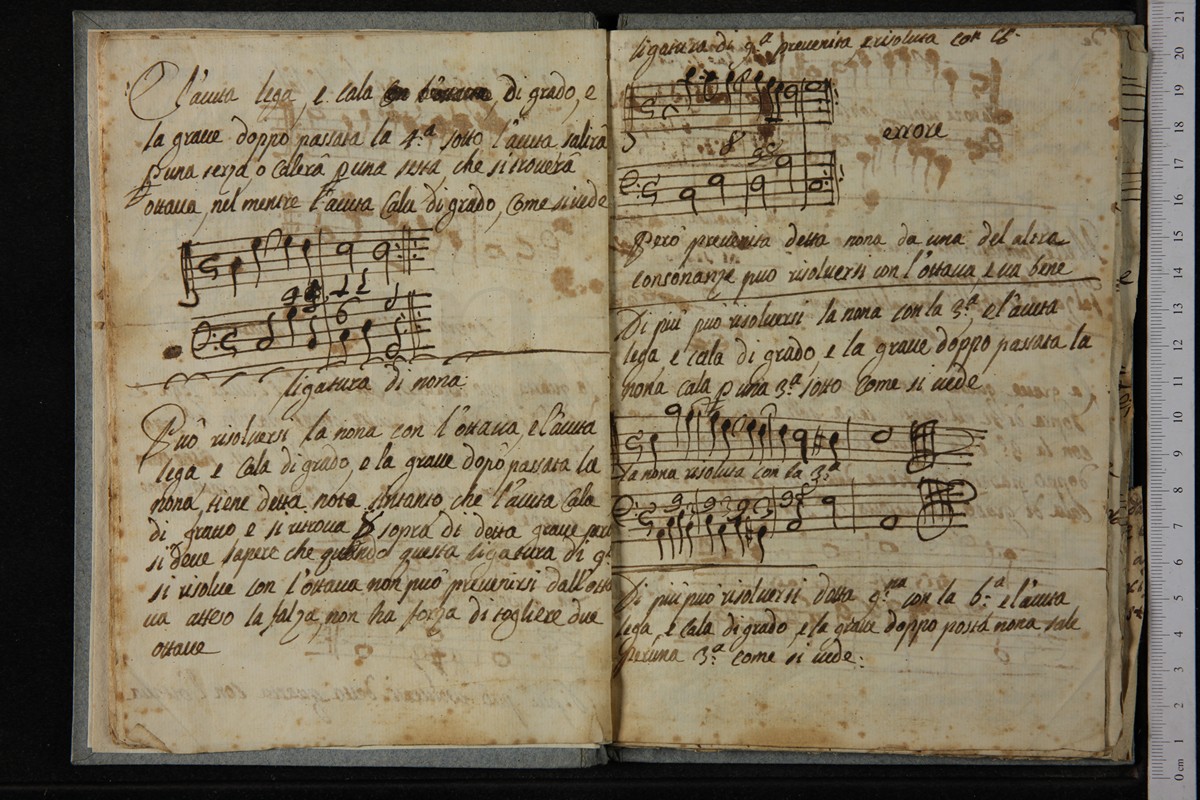 L'acuta lega, e cala di grado, e
la graue doppo passata la 4.ª sotto l'acuta salirà
p una terza o calerà p una sesta che si trouerà
ottaua, nel mentre l'acuta Cala di grado, Come si uede
4
6
ligatura di nona
Può risoluersi la nona con l'ottaua, e l'acuta
lega e cala di grado, e la graue dopo passata la
nona, tiene detta nota intanto che l'acuta Cala
di grado e si ritroua 8 sopra di detta graue però
si deue sapere che quando questa ligatura di 9.ª
si risolue con l'ottaua non può preuenirsi dall'otta
ua atteso la falza, non ha forza di togliere due
ottaue
ligatura di 9.ª preuenita e risoluta con l'8.ª
errore
8
98
Però preuenita detta nona da una del altre
consonanze può risoluersi con l'ottaua, e ua bene
Di più può risoluersi la nona con la 3.ª e l'acuta
lega e cala di grado, e la graue doppo passata la
nona cala p una 3.ª sotto come si uede
la nona risoluta con la 3.ª
93 93 93 93 98
Di più può risoluersi datta 9.na con la 6.ª e l'acuta
lega, e cala di grado, e la graue doppo posta nona sale
per una 3.ª come si uede: